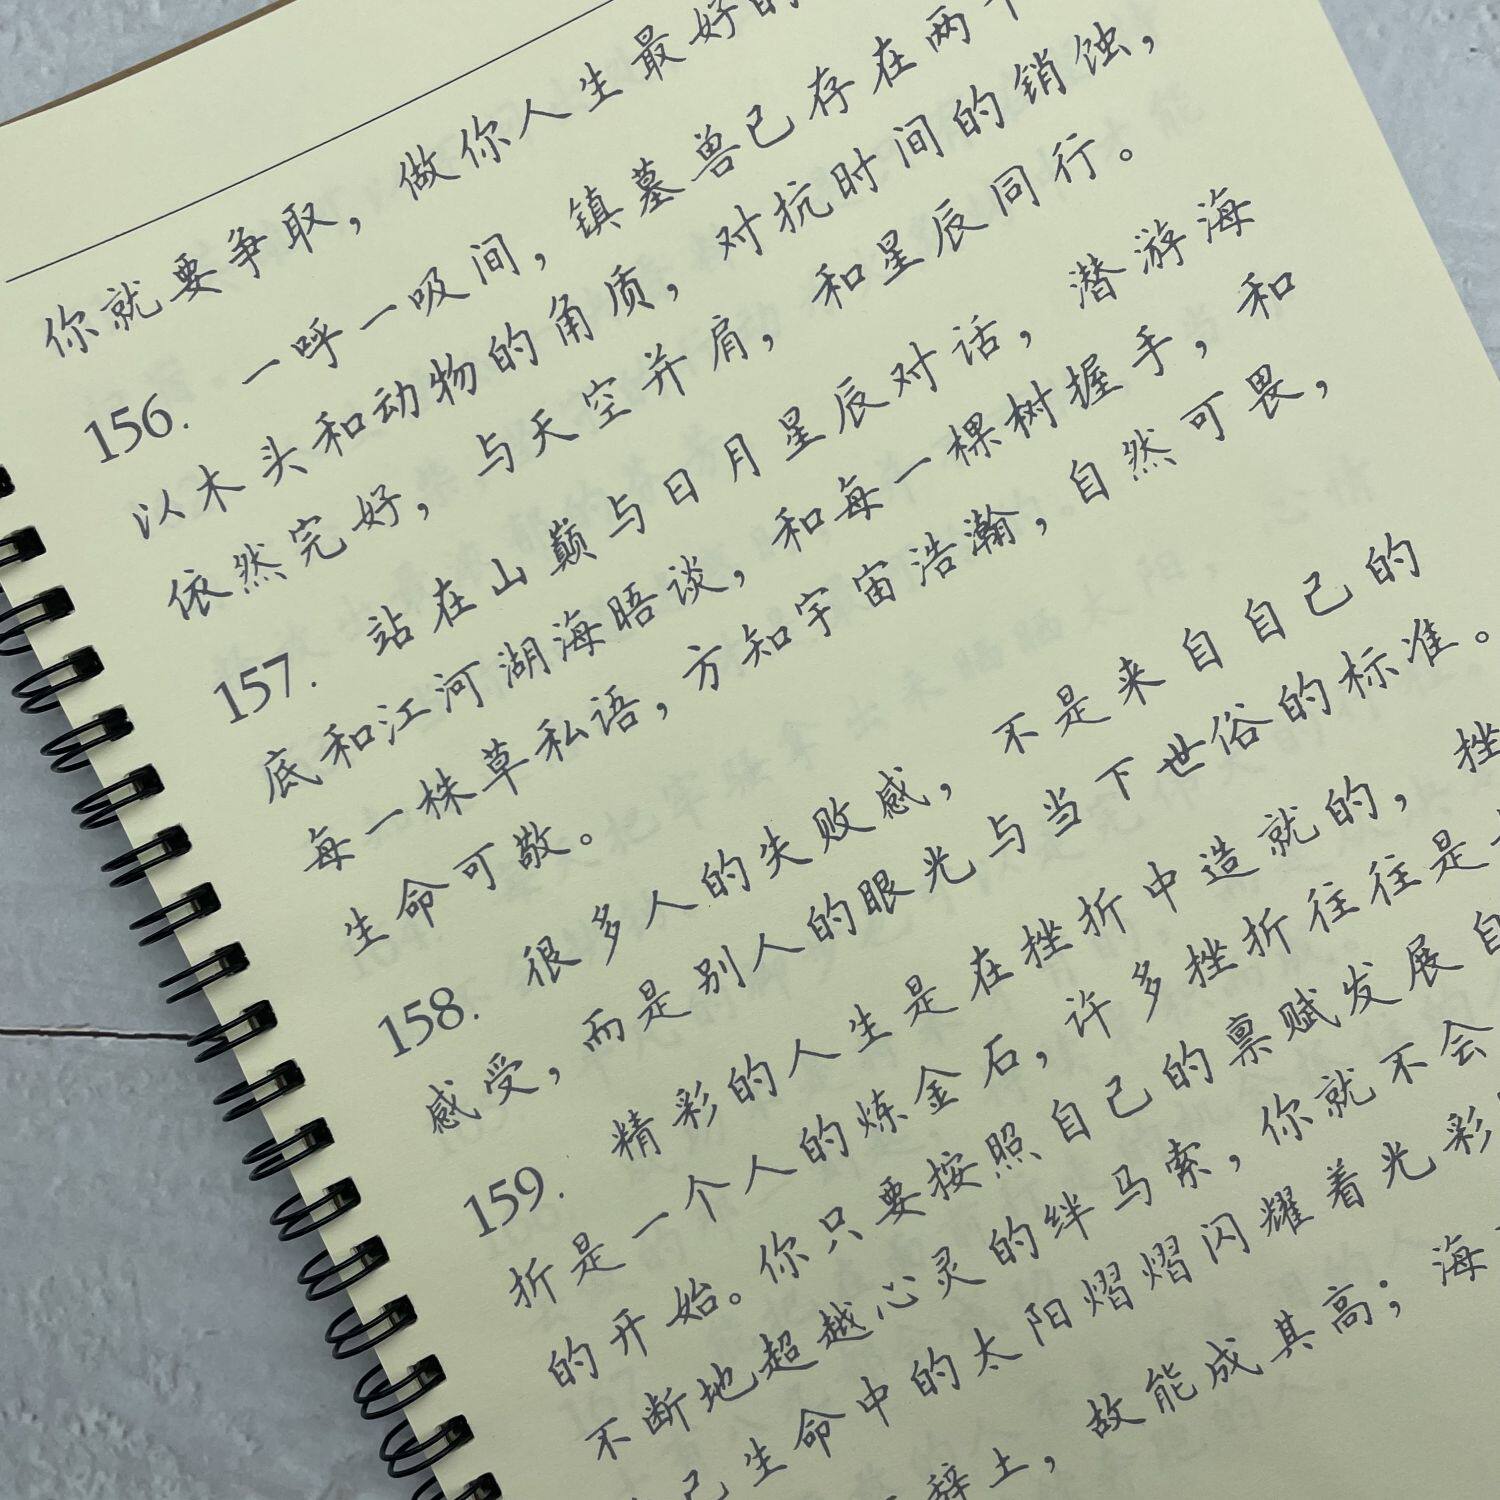 你就要争取，做你人生最好的
156. 一呼一吸间，镇墓兽已存在两千
以木头和动物的角质，对抗时间的销蚀，
依然完好，与天空并肩，和星辰同行。
157. 站在山巅与日月星辰对话，潜游海
底和江河湖海晤谈，和每一棵树握手，和
每一株草私语，方知宇宙浩瀚，自然可畏，
生命可敬。
158. 很多人的失败感，不是来自自己的
感受，而是别人的眼光与当下世俗的标准。
159. 精彩的人生是在挫折中造就的，挫
折是一个人的炼金石，许多挫折往往是
的开始。你只要按照自己的禀赋发展自
不断地超越心灵的绊马索，你就不会
己生命中的太阳熠熠闪耀着光彩
辞土，故能成其高；海